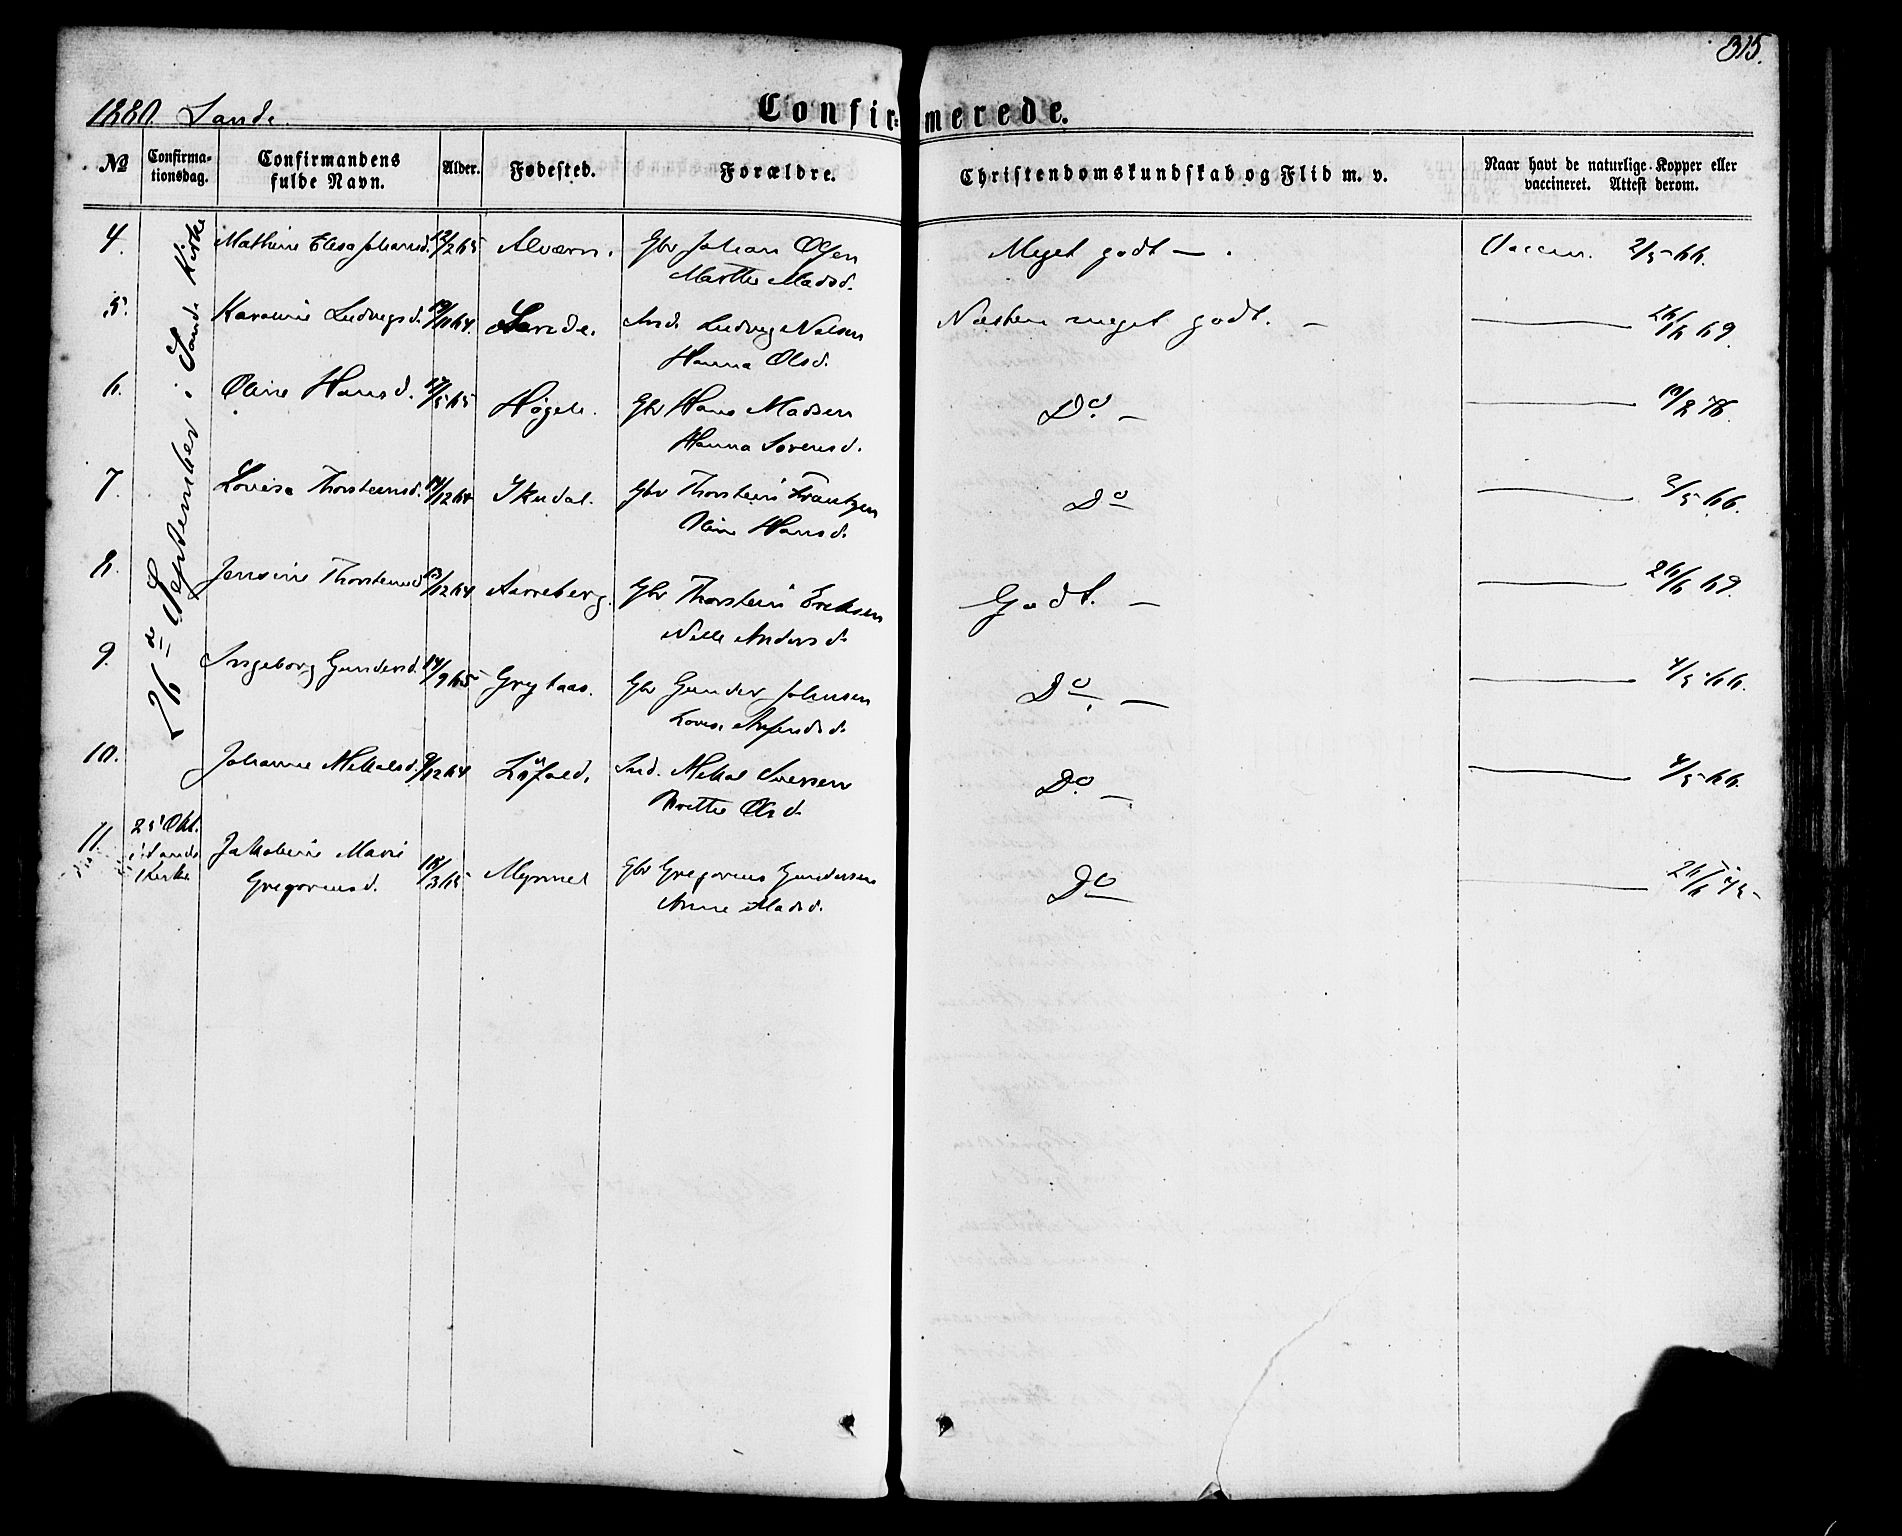 315.
1880. Sande.
Confirmerede.
№ Confirma-tionsdag. Confirmandens fulde Navn. Alder. Fødested. Forældre. Christendomskundskab og Flid m. v. Naar havt de naturlige Kopper eller vaccineret. Attest derom.
26de September i Sande Kirke
4. Mathine Elesa Johansd. 12/2 65 Alværn. Gbr Johan Olsen Meget godt — . Vaccin. 2/5 66.
Marthe Madsd.
5. Karoline Ludvigsd. 19/11 64. Sande. Ind. Ludvig Nelsen Næsten meget godt. — — 26/6 69.
Hanna Olsd.
6. Oline Hansd. 17/5 65 Høgeli. Gbr Hans Madsen Do. — — 10/2 76.
Hanna Sørensd.
7. Lovise Thorsteinsd. 14/12 64 Skudal. Gbr Thorstein Frantzen Do — 2/5 66.
Oline Hansd.
8. Jensine Thorsteinsd. 13/12 64 Aareberg. Gbr Thorstein Eriksen Godt. — — 26/6 69
Nille Andersd.
9. Ingeborg Gundersd. 14/9 65 Grytaas. Gbr Gunder Johnsen Do. — — 4/5 66.
Lovise
10. Johanne Mikalsd. 9/12 64 Ind. Mikal Iversen Do. — — 4/5 66.
Britte Olsd.
11. 25' Okt. i Sande Kirke Jakobine Marie Gregoriusd. 18/3 65 Myrmel Gbr Gregorius Gundersen Do — 26/6 75
Anne Madsd.